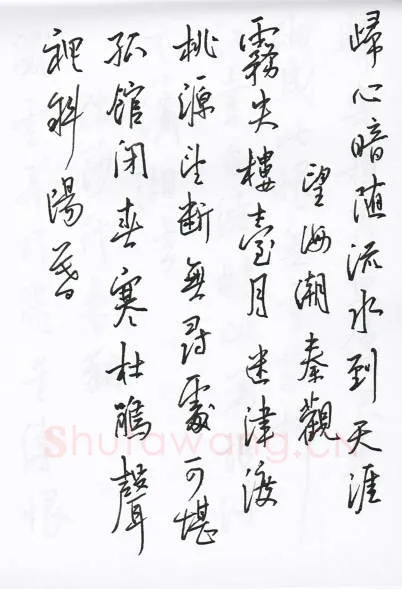 歸心暗随流水到天涯
望海潮秦觀
霧失樓臺月迷津渡
桃源望断無尋處可堪
孤館闭春寒杜鵑聲
裡斜陽暮
Shufawang.CN